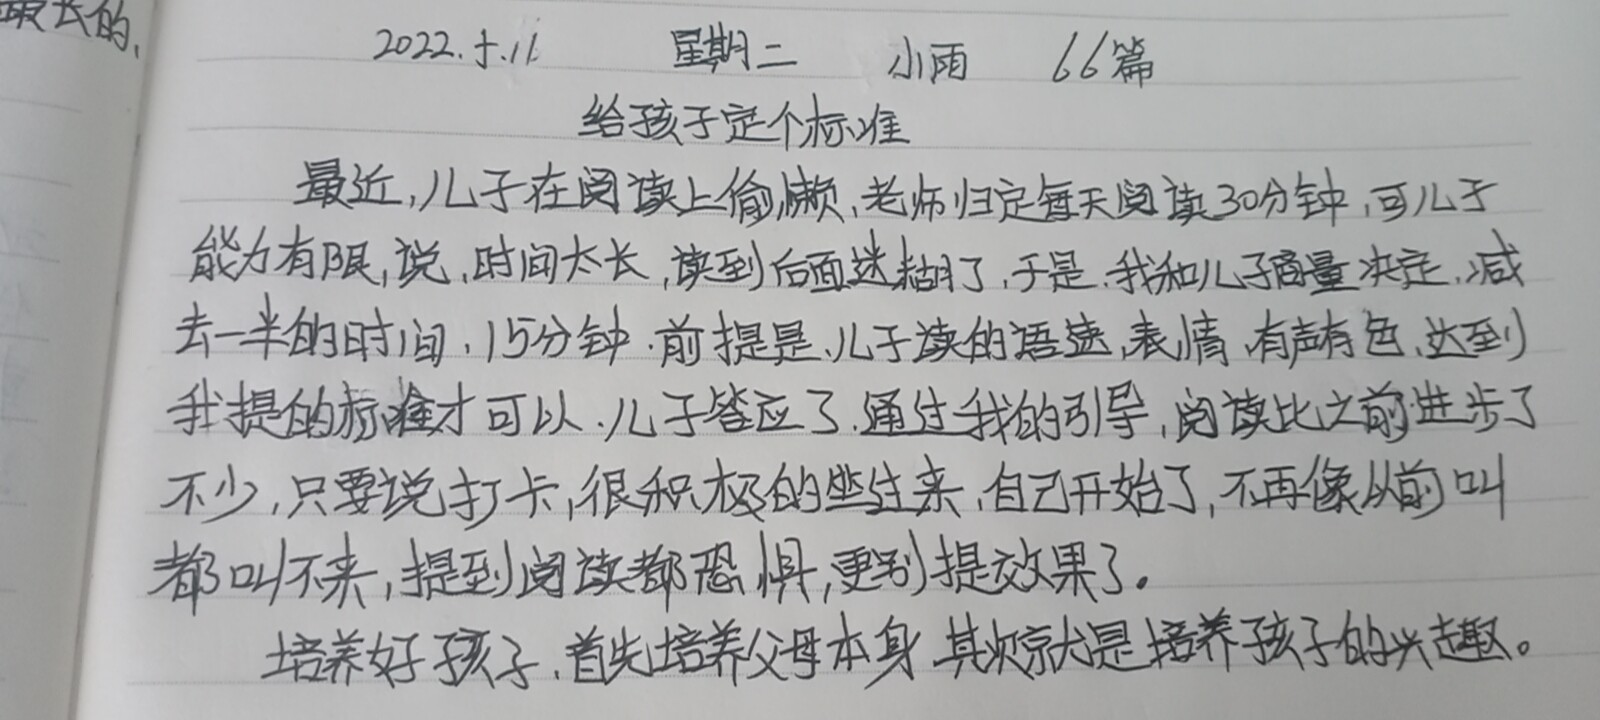 最长的,
2022.5.11 星期二 小雨 66篇
给孩子定个标准
最近,儿子在阅读上偷懒,老师归定每天阅读30分钟,可儿子
能力有限,说,时间太长,读到后面迷糊了,于是.我和儿子商量决定,减
去一半的时间,15分钟.前提是,儿子读的语速,表情,有声有色,达到
我提的标准才可以.儿子答应了.通过我的引导,阅读比之前进步了
不少,只要说打卡,很积极的坐过来,自己开始了,不再像从前叫
都叫不来,提到阅读都恐惧,更别提效果了。
培养好孩子,首先培养父母本身 其次就是培养孩子的兴趣。